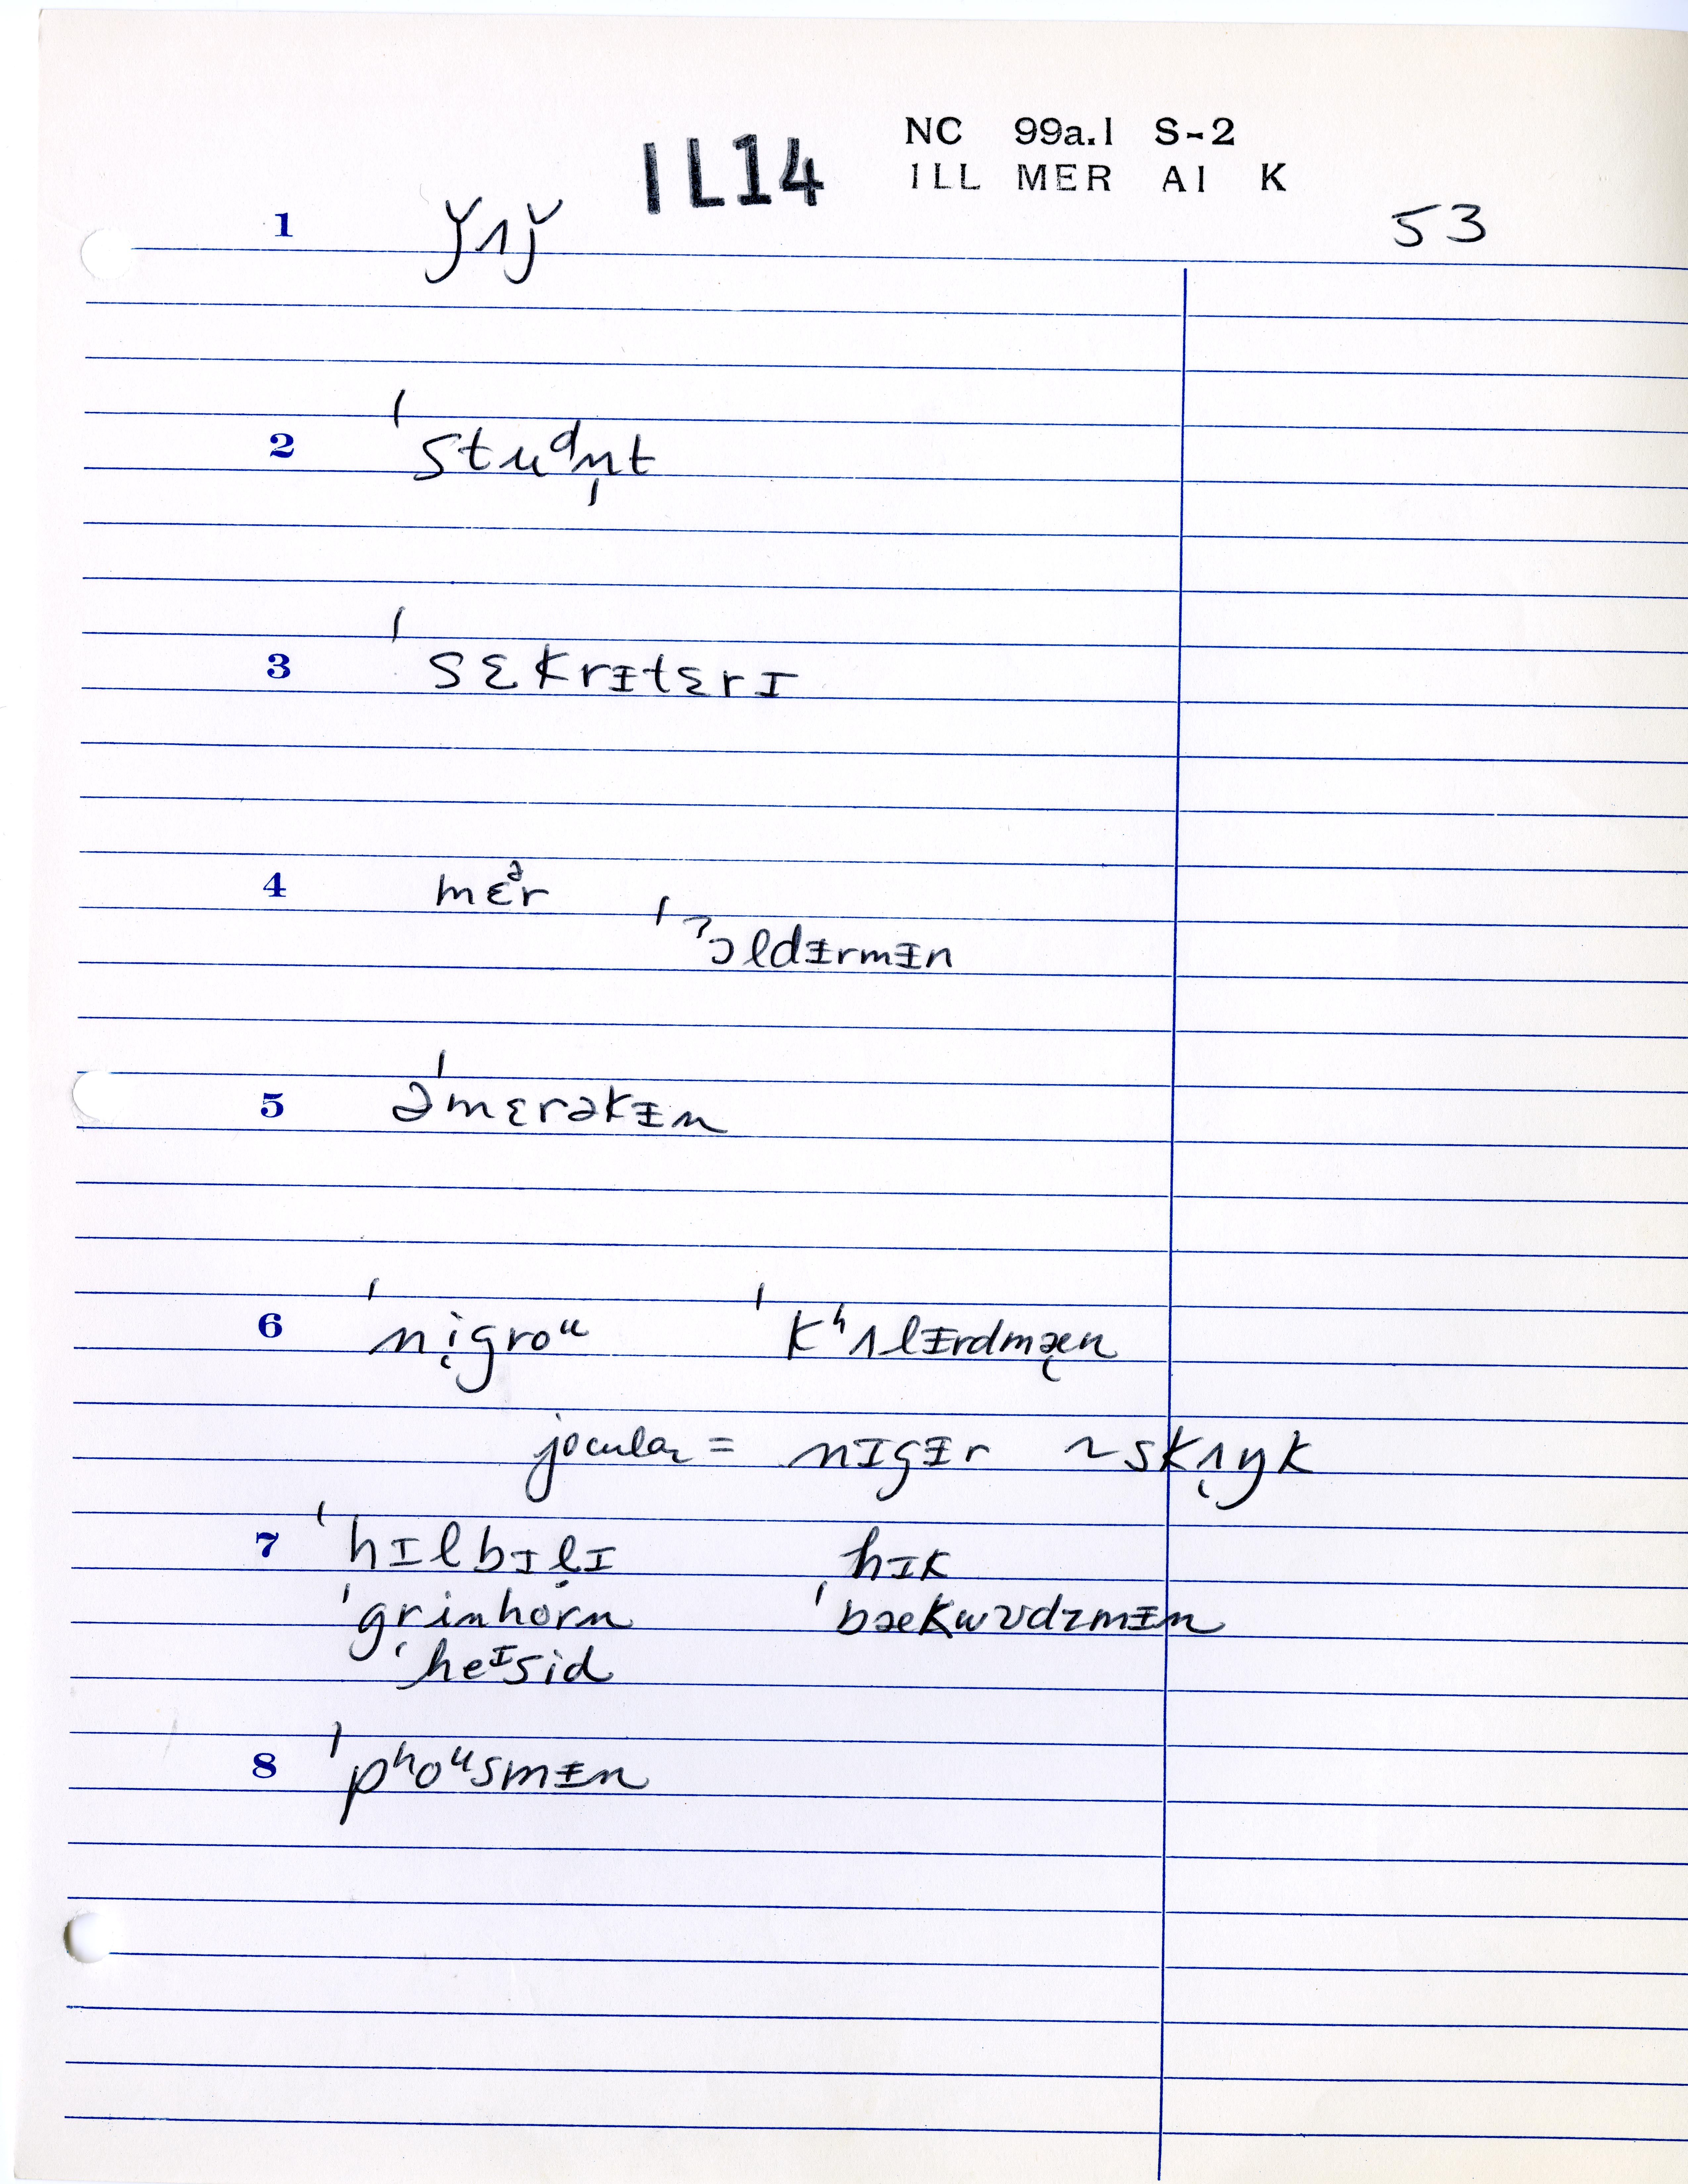 IL14 NC 99a.1 S-2
ILL MER A1 K
53
1 ǰʌǰ
2 ˈstuᵈn̩t
3 ˈsɛkrᵻtɛrɪ
4 mɛᵊr ˈˀɔldᵻrmᵻn
5 əˈmɛrəkᵻn
6 ˈni̜groᵘ ˈkʰʌlᵻrdmæ̜n
jocular = nɪgᵻr ~ skʌ̜ŋk
7 ˈhɪlbɪl̩ɪ hɪk
ˈgrinhorn ˈbækwʊdzmᵻn
ˈheᴵsid
8 ˈpʰoᵘsmᵻn